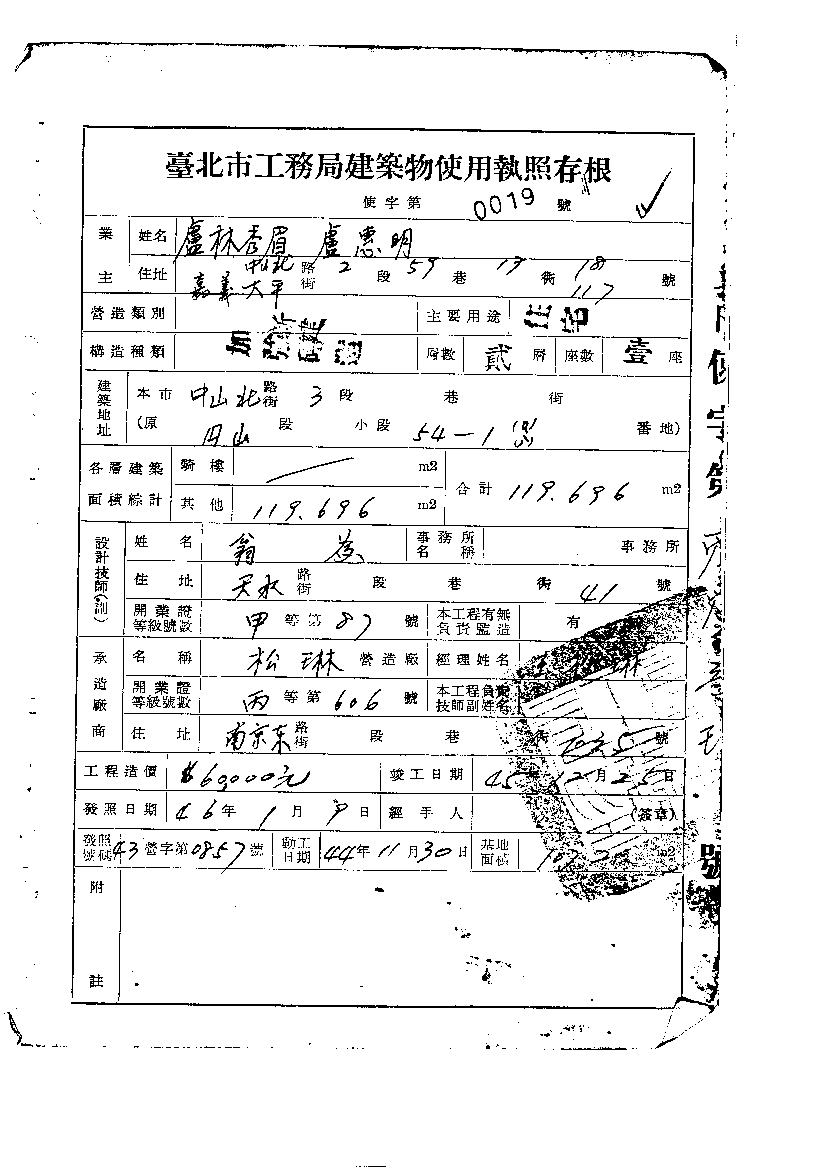 臺北市工務局建築物使用執照存根
使字第 0019 號
業主 姓名 盧林杏眉 盧惠明
住址 中山北 路街 2 段 59 巷 13 街 18 號
嘉義 太平 117
營造類別 主要用途 住宅
構造種類 加強磚造 層數 貳 層 座數 壹 座
建築地址 本市 中山北 路街 3 段 巷 街
(原 円山 段 小段 54-1 番地)
各層建築面積綜計 騎樓 m2 合計 119.696 m2
其他 119.696 m2
設計技師(訓) 姓名 翁 事務所名稱 事務所
住址 天水 路街 段 巷 街 41 號
開業證等級號數 甲 等第 87 號 本工程有無負責監造 有
承造廠商 名稱 松琳 營造廠 經理姓名 琳
開業證等級號數 丙 等第 606 號 本工程負責技師副姓名
住址 南京東 路街 段 巷 街 號
工程造價 $60,000元 竣工日期 45年12月25日
發照日期 46年1月 日 經手人 (簽章)
發照號碼 43 營字第 0857 號 動工日期 44年11月30日 基地面積 m2
附註
使字第
號